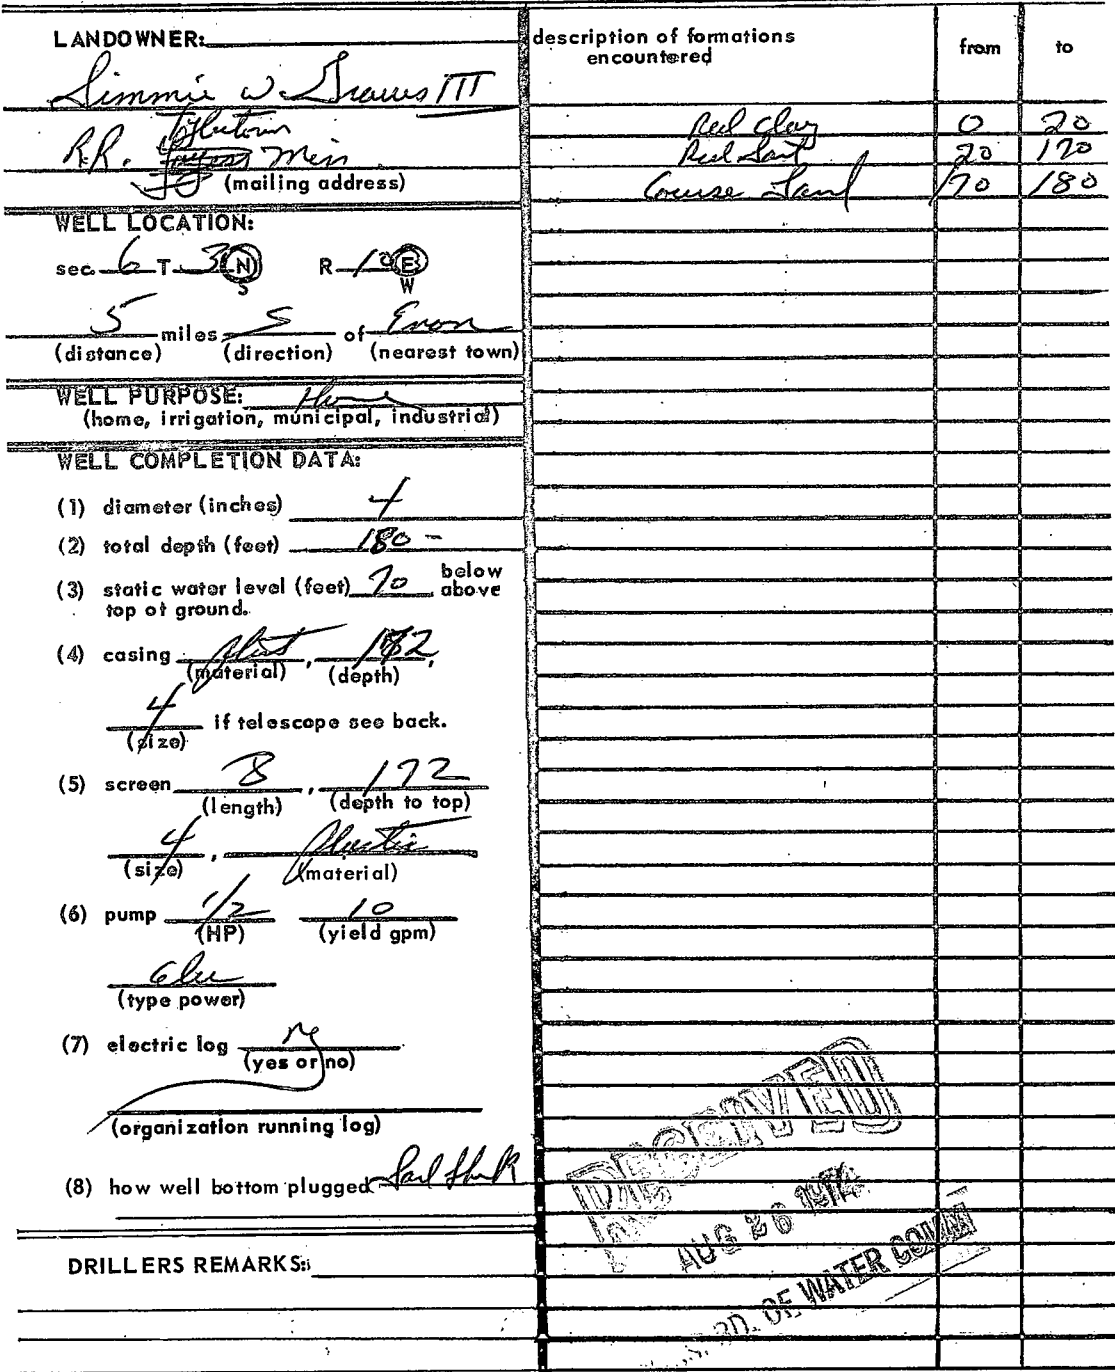 LANDOWNER:
Simmie W. Graves III
R.R. Tylertown Miss
(mailing address)
WELL LOCATION:
sec. 6 T 3 N R 10 E
S W
5 miles S of Enon
(distance) (direction) (nearest town)
WELL PURPOSE: Home
(home, irrigation, municipal, industrial)
WELL COMPLETION DATA:
(1) diameter (inches) 4
(2) total depth (feet) 180 -
(3) static water level (feet) 70 below above
top of ground.
(4) casing plast,
(material) (depth)
4 if telescope see back.
(size)
(5) screen 8, 172
(length) (depth to top)
4, Plastic
(size) (material)
(6) pump 1/2 10
(HP) (yield gpm)
Elec
(type power)
(7) electric log no
(yes or no)
(organization running log)
(8) how well bottom plugged
DRILLERS REMARKS:
description of formations from to
encountered
Red Clay 0 20
Red 20 170
Course Sand 170 180
RECEIVED
AUG 26 1974
BD. OF WATER COMM